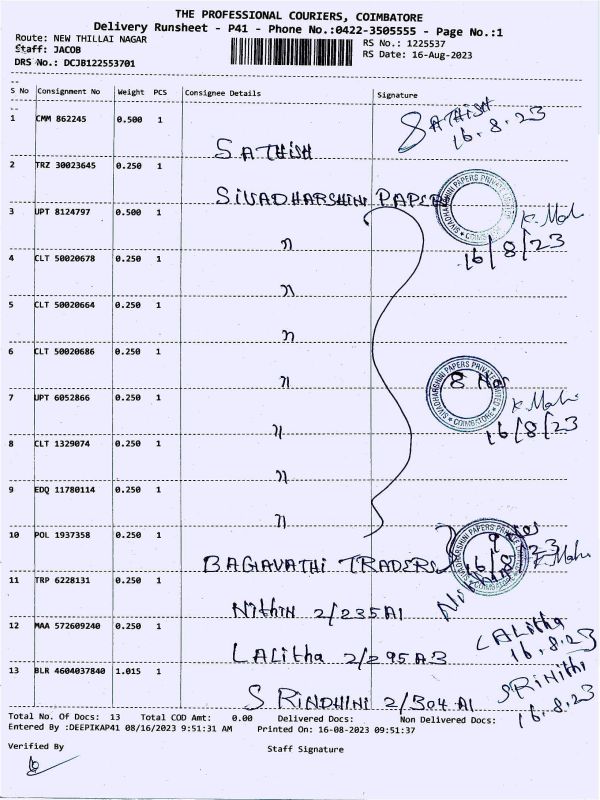 THE PROFESSIONAL COURIERS, COIMBATORE
Delivery Runsheet - P41 - Phone No.:0422-3505555 - Page No.:1
Route: NEW THILLAI NAGAR
RS No.: 1225537
Staff: JACOB
RS Date: 16-Aug-2023
DRS No.: DCJB122553701
S No Consignment No Weight PCS Consignee Details Signature
1 CMM 862245 0.500 1 SATHISH SATHISH 16.8.23
2 TRZ 30023645 0.250 1 SIVADHARSHINI PAPERS
SIVADHARSHINI PAPERS PRIVATE LIMITED * COIMBATORE *
3 UPT 8124797 0.500 1 "
16/8/23
4 CLT 50020678 0.250 1 "
5 CLT 50020664 0.250 1 "
6 CLT 50020686 0.250 1 "
SIVADHARSHINI PAPERS PRIVATE LIMITED * COIMBATORE *
7 UPT 6052866 0.250 1 "
16/8/23
8 CLT 1329074 0.250 1 "
9 EDQ 11780114 0.250 1 "
10 POL 1937358 0.250 1 BAGIAVATHI TRADERS
11 TRP 6228131 0.250 1 Nithin 2/235A1
12 MAA 572609240 0.250 1 LALitha 2/295 A3 LALitha 16.8.23
13 BLR 4604037840 1.015 1 SRINDHINI 2/304 A1 SRiNithi 16.8.23
Total No. Of Docs: 13 Total COD Amt: 0.00 Delivered Docs: Non Delivered Docs:
Entered By :DEEPIKAP41 08/16/2023 9:51:31 AM Printed On: 16-08-2023 09:51:37
Verified By
Staff Signature